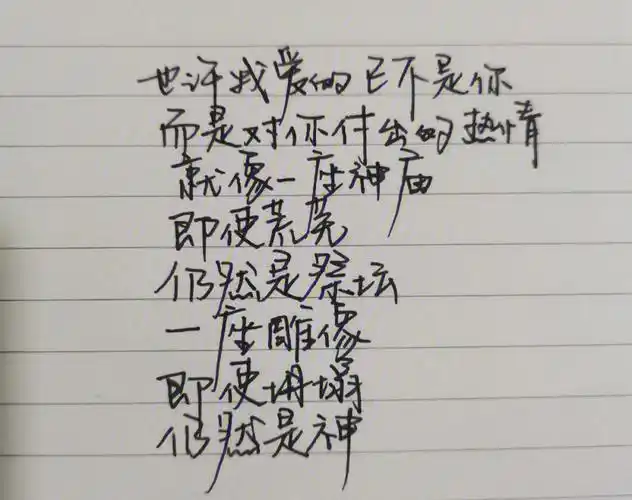 也许我爱的已不是你
而是对你付出的热情
就像一座神庙
即使荒芜
仍然是祭坛
一座雕像
即使坍塌
仍然是神